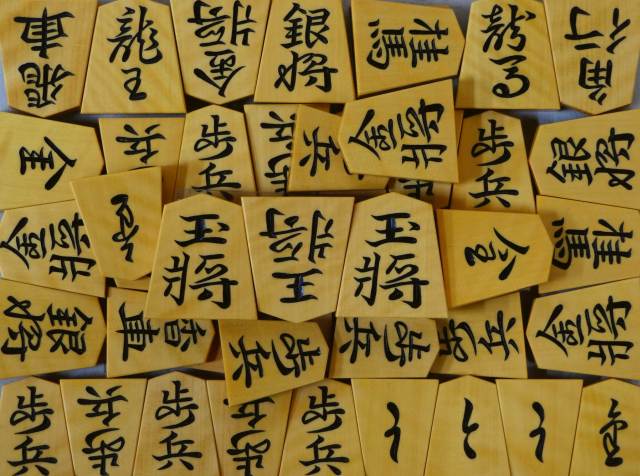 香車
龍王
金将
銀将
桂馬
龍馬
歩兵
歩兵
歩兵
歩兵
金将
歩兵
銀将
金将
玉将
王将
玉将
桂馬
銀将
香車
歩兵
歩兵
歩兵
金将
歩兵
歩兵
歩兵
歩兵
歩兵
と
と
と